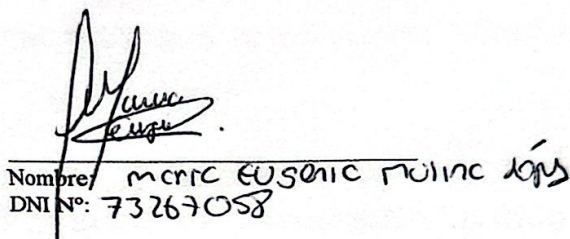 Maria
Nombre: Maria Eugenia Molina López
DNI Nº: 73267058